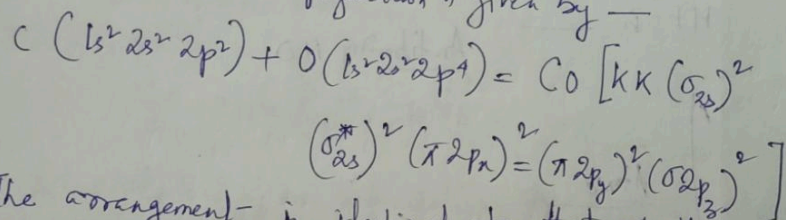 given by —
C (1s² 2s² 2p²) + O (1s² 2s² 2p⁴) = CO [KK (σ2s)²
(σ*2s)² (π2px)² = (π2py)² (σ2pz)²]
The arrangement